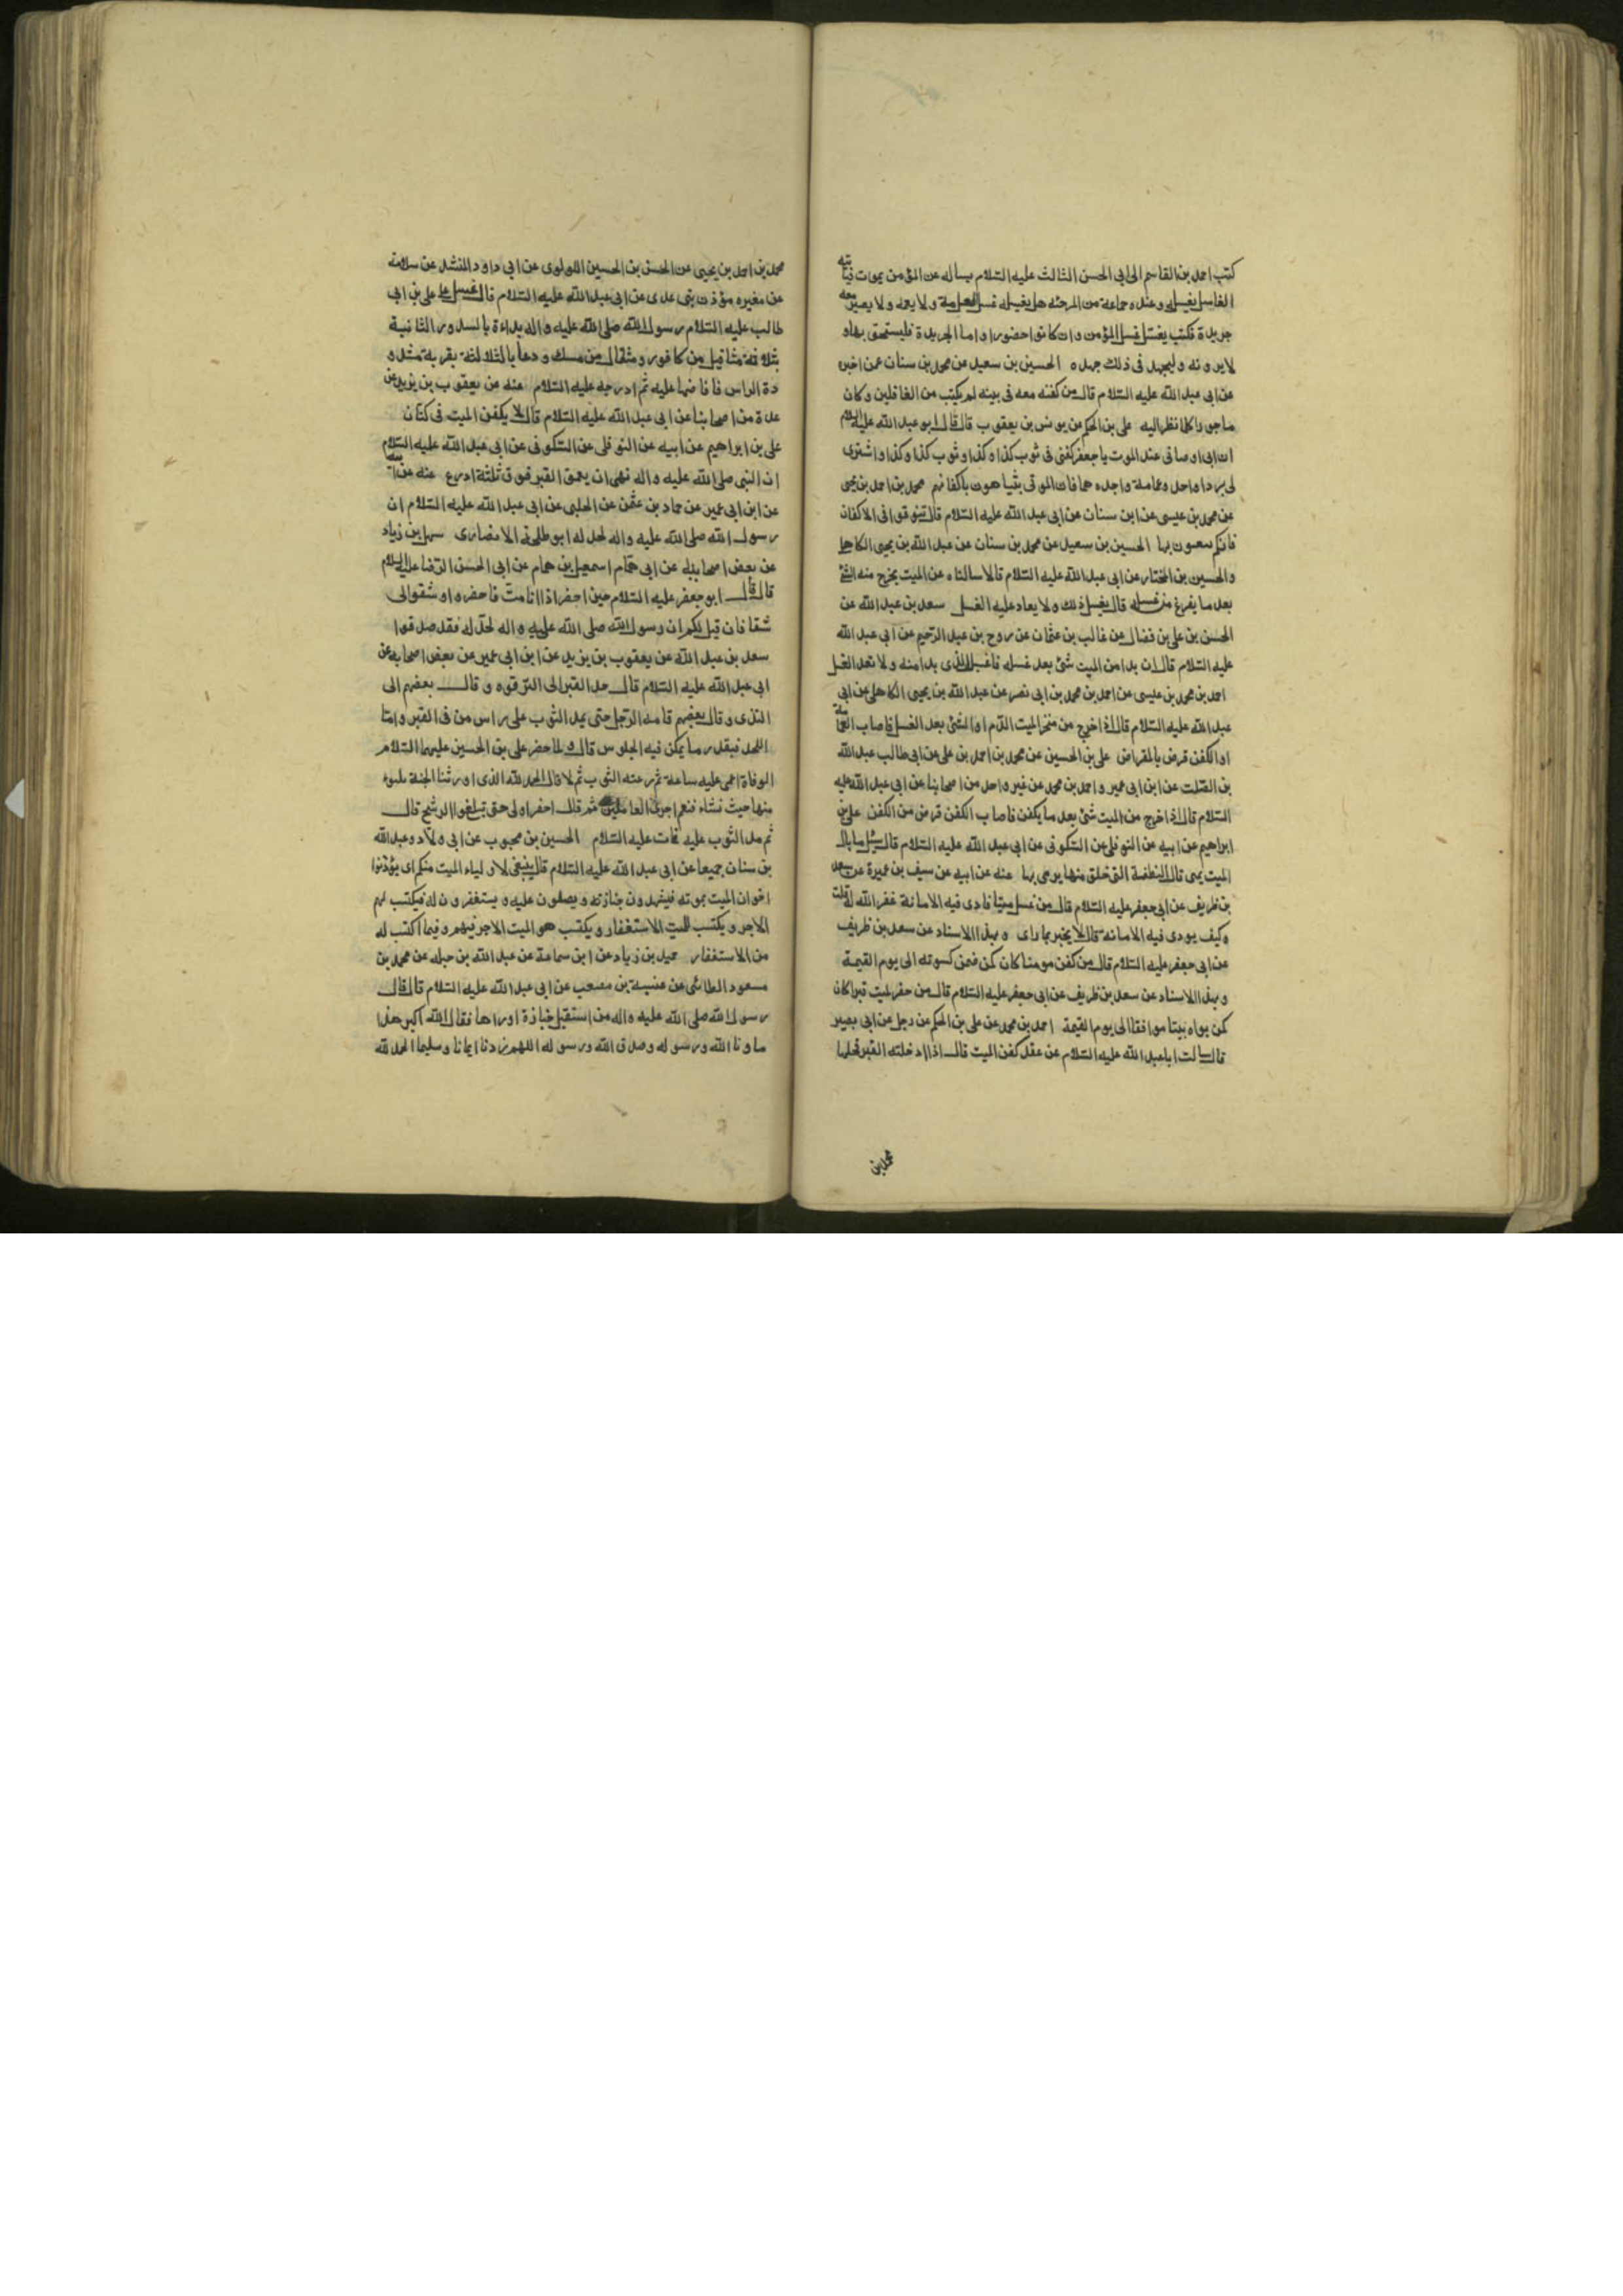 كتب احمد بن القاسم الى ابى الحسن الثالث عليه السّلام يساله عن المؤمن يموت فياتيه
الغاسل يغسله وعنده جماعة من المرجئه هل يغسله غسل العامة ولا يعمه ولا يصير معه
جريدة فكتب يغسل غسل المؤمن وان كانوا حضورا واما الجريدة فليستخف بها و
لا يرونه وليجهد فى ذلك جهده الحسين بن سعيد عن محمد بن سنان عمن اخبره
عن ابى عبد الله عليه السّلام قال من كفنه معه فى بيته لم يكتب من الغافلين وكان
ماجورا كلما نظر اليه على بن الحكم عن يونس بن يعقوب قال قال ابو عبد الله عليه السلام
ان ابى اوصانى عند الموت يا جعفر كفنى فى ثوب كذا وكذا وثوب كذا وكذا واشترى
لى بردا واحد وعمامة واجدهما فان الموتى يتباهون باكفانهم محمد بن احمد بن يحيى
عن محمد بن عيسى عن ابن سنان عن ابى عبد الله عليه السّلام قال تنوقوا فى الاكفان
فانكم تبعثون بها الحسين بن سعيد عن محمد بن سنان عن عبد الله بن يحيى الكاهلى
والحسين بن المختار عن ابى عبد الله عليه السّلام قالا سالناه عن الميت يخرج منه الشئ
بعد ما يفرغ من غسله قال يغسل ذلك ولا يعاد عليه الغسل سعد بن عبد الله عن
الحسن بن على بن فضال عن غالب بن عثمان عن روح بن عبد الرّحيم عن ابى عبد الله
عليه السّلام قال ان بدا من الميت شئ بعد غسله فاغسل الذى بدا منه ولا تعد الغسل
احمد بن محمد بن عيسى عن احمد بن محمد بن ابى نصر عن عبد الله بن يحيى الكاهلى عن ابى
عبد الله عليه السّلام قال اذا خرج من منخر الميت الدّم او الشئ بعد الغسل فاصاب العمامة
او الكفن قرض بالمقراض على بن الحسين عن محمد بن احمد بن على عن ابى طالب عبد الله
بن الصّلت عن ابن ابى عمير واحمد بن محمد عن غير واحد من اصحابنا عن ابى عبد الله عليه
السّلام قال اذا خرج من الميت شئ بعد ما يكفن فاصاب الكفن قرض من الكفن على بن
ابراهيم عن ابيه عن النوفلى عن السّكونى عن ابى عبد الله عليه السّلام قال سئل ما بال
الميت يمنى قال النطفة التى خلق منها يرمى بها عنه عن ابيه عن سيف بن عميرة عن سعد
بن ظريف عن ابى جعفر عليه السّلام قال من غسل ميتا فادى فيه الامانة غفر الله له قلت
وكيف يودى فيه الامانة قال لا يخبر بما راى وبهذا الاسناد عن سعد بن ظريف
عن ابى جعفر عليه السّلام قال من كفن مومنا كان كمن ضمن كسوته الى يوم القيمة
وبهذا الاسناد عن سعد بن ظريف عن ابى جعفر عليه السّلام قال من حفر لميت قبرا كان
كمن بواه بيتا موافقا الى يوم القيمة احمد بن محمد عن على بن الحكم عن رجل عن ابى بصير
قال سالت ابا عبد الله عليه السّلام عن عقد كفن الميت قال اذا ادخلته القبر فحلها
محمد بن
محمد بن احمد بن يحيى عن الحسن بن الحسين اللولوى عن ابى داود المنشد عن سلامة
عن مغيره مؤذن بنى عدى عن ابى عبد الله عليه السّلام قال غسل على بن ابى
طالب عليه السّلام رسول الله صلى الله عليه واله بداءة بالسدر والثانية
بثلاثة مثاقيل من كافور ومثقال من مسك ودعا بالثالثة بقربة مشدو
دة الراس فافاضها عليه ثم ادرجه عليه السّلام عنه عن يعقوب بن يزيد عن
عدة من اصحابنا عن ابى عبد الله عليه السّلام قال لا يكفن الميت فى كتان
على بن ابراهيم عن ابيه عن النوفلى عن السّكونى عن ابى عبد الله عليه السّلام
ان النبى صلى الله عليه واله نهى ان يعمق القبر فوق ثلثة اذرع عنه عن ابيه
عن ابن ابى عمير عن حماد بن عثمن عن الحلبى عن ابى عبد الله عليه السّلام ان
رسول الله صلى الله عليه واله لحد له ابو طلحة الانصارى سهل بن زياد
عن بعض اصحابه عن ابى همّام اسمعيل بن همام عن ابى الحسن الرّضا عليه السلام
قال قال ابو جعفر عليه السّلام حين احضر اذا انا متّ فاحفروا وشقوا لى
شقا فان قيل لكم ان رسول الله صلى الله عليه واله لحدّ له فقد صدقوا
سعد بن عبد الله عن يعقوب بن يزيد عن ابن ابى عمير عن بعض اصحابه عن
ابى عبد الله عليه السّلام قال حد القبر الى الترقوه وقال بعضهم الى
الثدى وقال بعضهم قامة الرّجل حتى يمد الثوب على راس من فى القبر وامّا
اللحد فبقدر ما يمكن فيه الجلوس قال ولما حضر على بن الحسين عليهما السّلام
الوفاة اغمى عليه ساعة ثم رفع عنه الثوب ثم قال الحمد لله الذى اورثنا الجنة نتبوء
منها حيث نشاء فنعم اجر العاملين ثم قال احفروا لى حتى تبلغوا الرشح قال
ثم مد الثوب عليه فمات عليه السّلام الحسين بن محبوب عن ابى ولاد وعبد الله
بن سنان جميعا عن ابى عبد الله عليه السّلام قال ينبغى لاولياء الميت منكم ان يؤذنوا
اخوان الميت بموته فيشهدون جنازته ويصلون عليه ويستغفرون له فيكتب لهم
الاجر ويكتب للميت الاستغفار ويكتب هو الميت الاجر فيهم وفيما اكتب له
من الاستغفار حميد بن زياد عن ابن سماعة عن عبد الله بن جبله عن محمد بن
مسعود الطائى عن عنبسة بن مصعب عن ابى عبد الله عليه السّلام قال قال
رسول الله صلى الله عليه واله من استقبل جنازة او راها فقال الله اكبر هذا
ما وعدنا الله ورسوله وصدق الله ورسوله اللهم زدنا ايمانا وتسليما الحمد لله